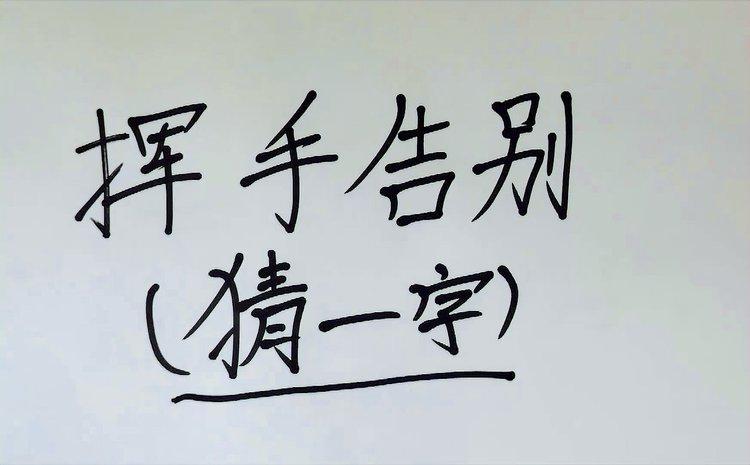 挥手告别
(猜一字)